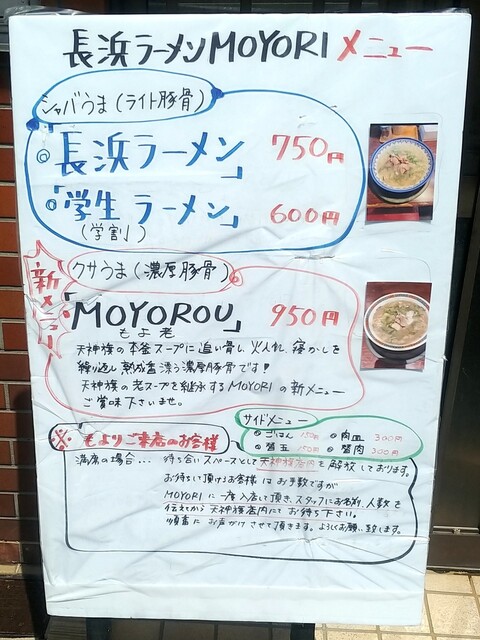 長浜ラーメンMOYORI メニュー
シャバうま(ライト豚骨)
◎「長浜ラーメン」 750円
◎「学生ラーメン」 600円
(学割)
新メニュー
クサうま(濃厚豚骨)
「MOYOROU」 950円
もよ老
天神旗の本釜スープに追い骨し、火入れ、寝かしを
繰り返し熟成香漂う濃厚豚骨です!
天神旗の老スープを継承するMOYORIの新メニュー
ご賞味下さいませ。
サイドメニュー
◎ごはん 150円 ◎肉皿 300円
◎醤玉 150円 ◎醤肉 300円
※ もよりご来店のお客様
満席の場合... 待ち合いスペースとして天神旗店内を解放しております。
お待ちい頂けるお客様はお手数ですが
MOYORIに一度入店して頂き、スタッフにお名前、人数を
伝えてから天神旗店内にてお待ち下さい。
順番にお声かけさせて頂きます。よろしくお願い致します。